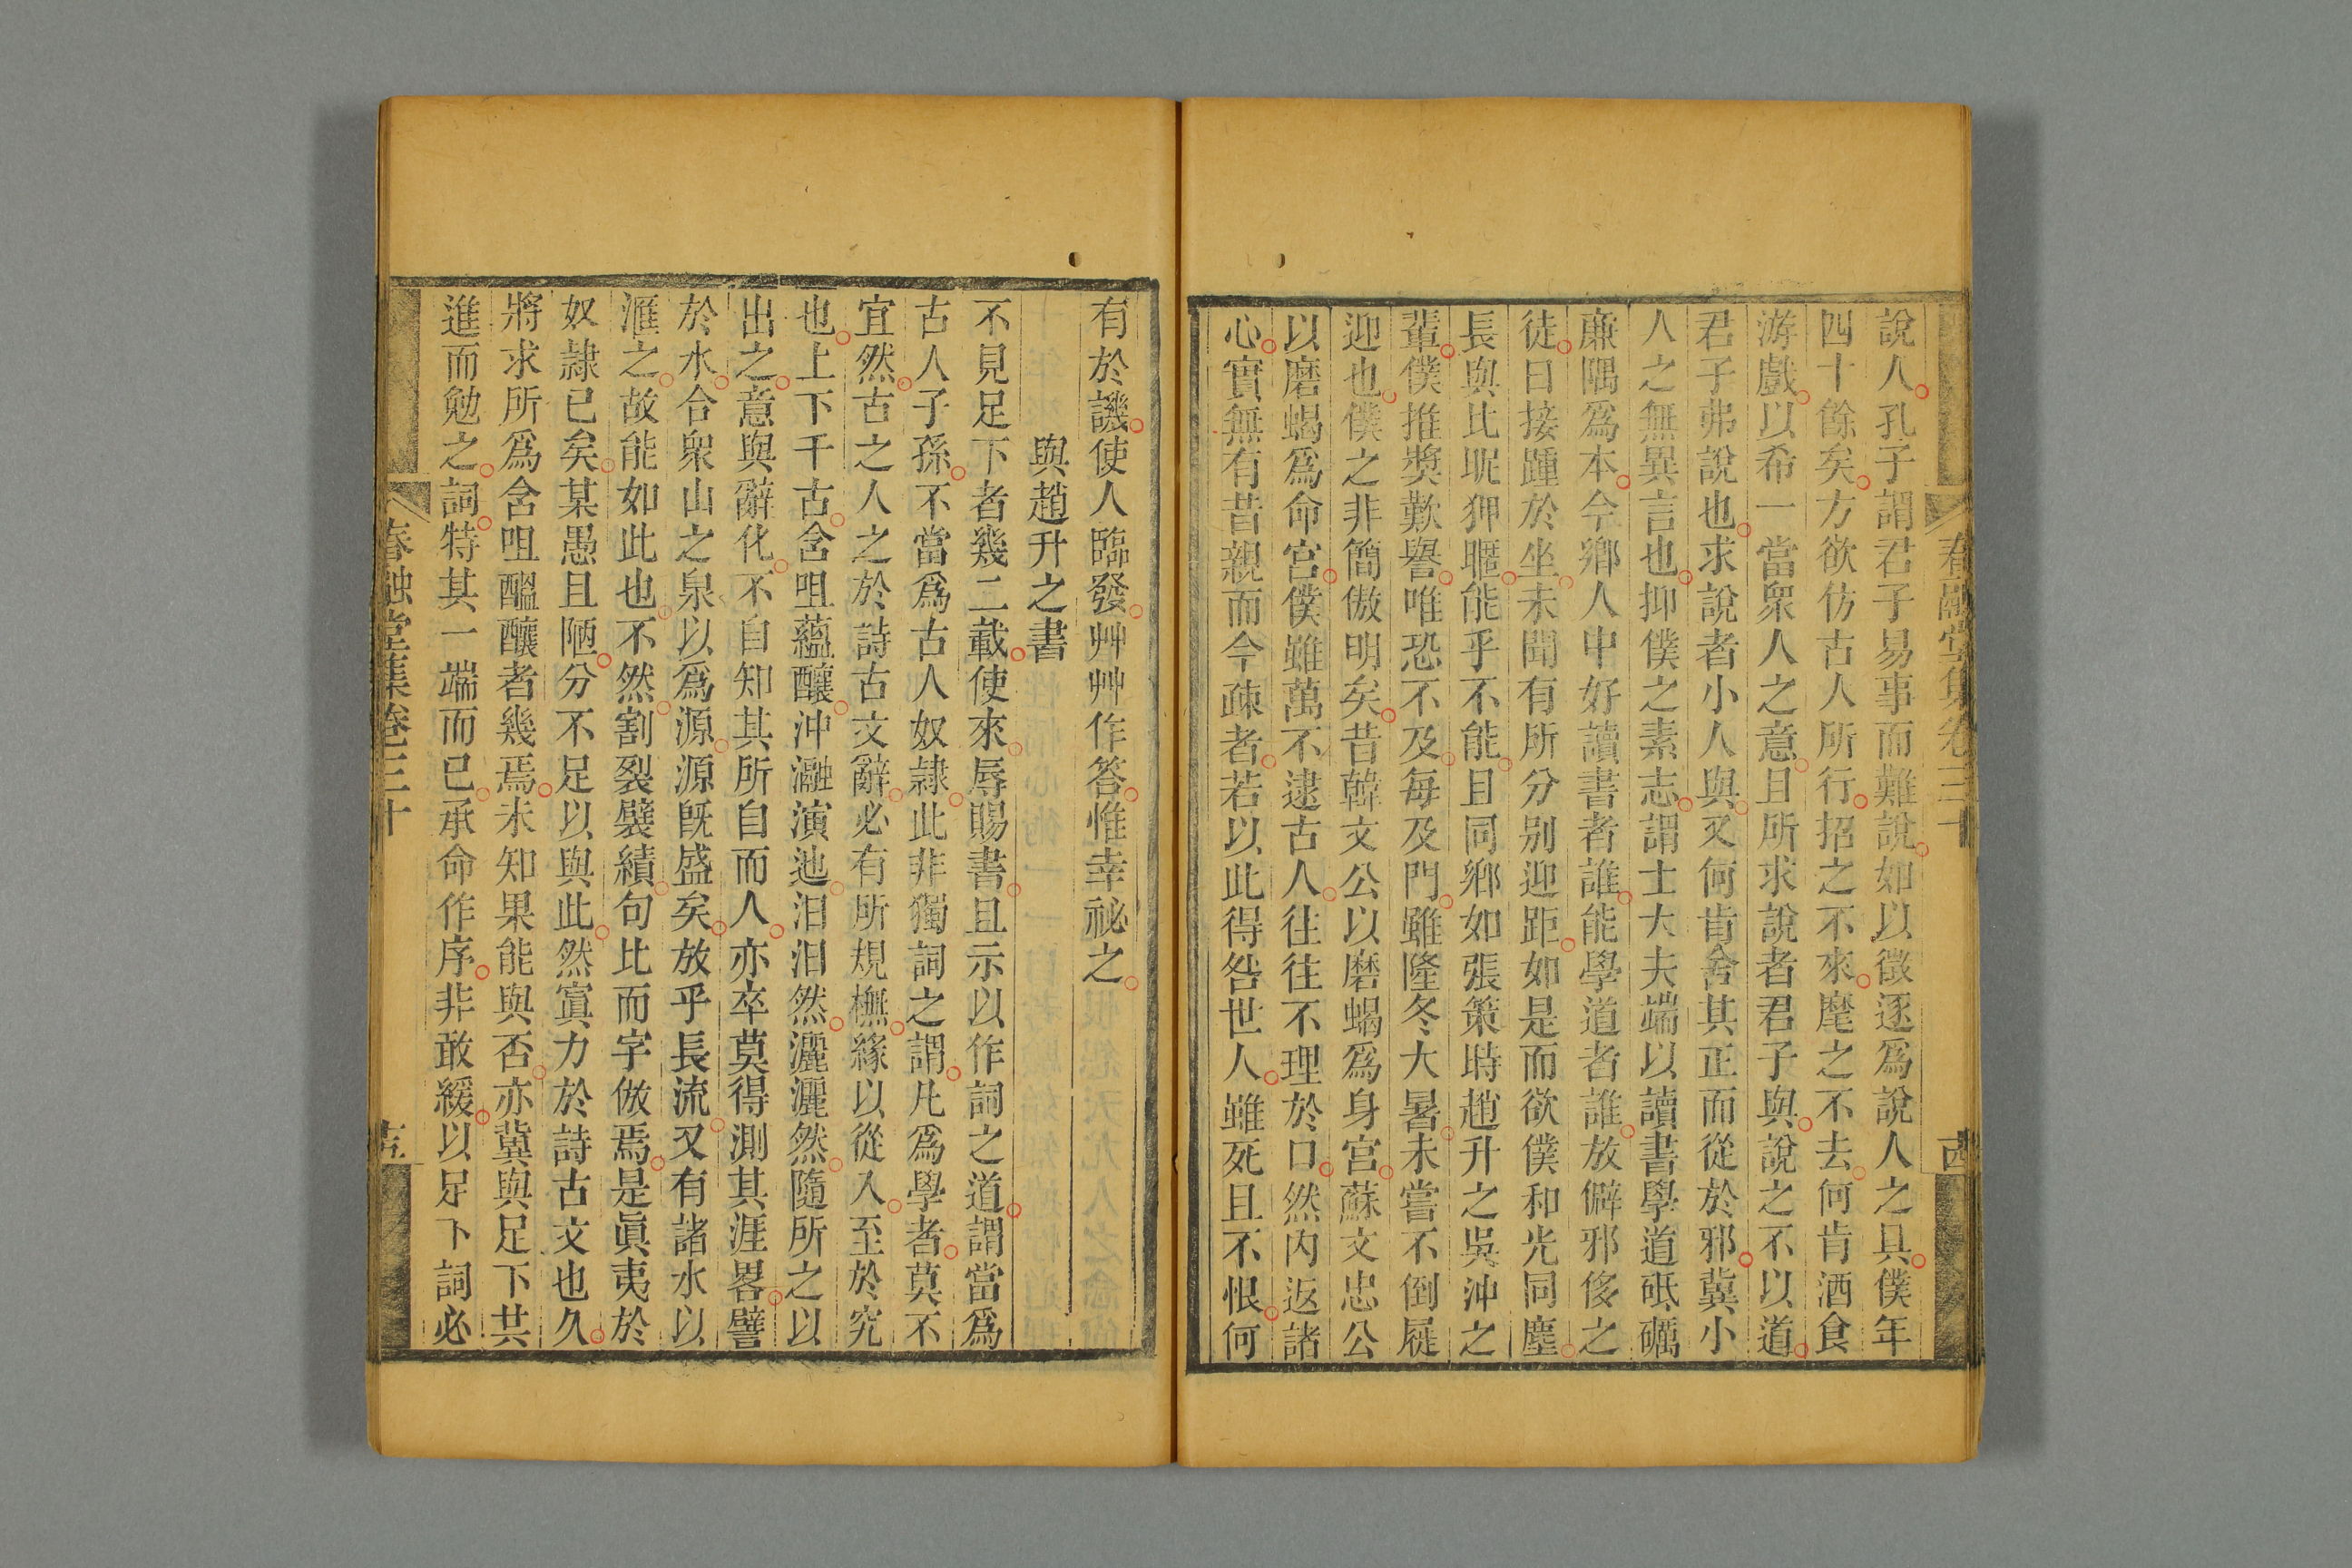 春融堂集卷三十
說人孔子謂君子易事而難說如以徵逐爲說人之具僕年
四十餘矣方欲仿古人所行招之不來麾之不去何肯酒食
游戲以希一當衆人之意且所求說者君子與說之不以道
君子弗說也求說者小人與又何肯舍其正而從於邪冀小
人之無異言也抑僕之素志謂士大夫端以讀書學道砥礪
廉隅爲本今鄉人中好讀書者誰能學道者誰放僻邪侈之
徒日接踵於坐未聞有所分別迎距如是而欲僕和光同塵
長與比昵狎暱能乎不能且同鄉如張策時趙升之吳沖之
輩僕推奬歎譽唯恐不及每及門雖隆冬大暑未嘗不倒屣
迎也僕之非簡傲明矣昔韓文公以磨蝎爲身宫蘇文忠公
以磨蝎爲命宫僕雖萬不逮古人往往不理於口然内返諸
心實無有昔親而今疎者若以此得咎世人雖死且不恨何
有於譏使人臨發艸艸作答惟幸祕之
與趙升之書
不見足下者幾二載使來辱賜書且示以作詞之道謂當爲
古人子孫不當爲古人奴隷此非獨詞之謂凡爲學者莫不
宜然古之人之於詩古文辭必有所規橅緣以從入至於究
也上下千古含咀蘊釀沖瀜演迆汩汩然灑灑然隨所之以
出之意與辭化不自知其所自而人亦卒莫得測其涯畧譬
於水合衆山之泉以爲源源旣盛矣放乎長流又有諸水以
滙之故能如此也不然割裂襞績句比而字倣焉是眞夷於
奴隷已矣某愚且陋分不足以與此然寘力於詩古文也久
將求所爲含咀醞釀者幾焉未知果能與否亦冀與足下共
進而勉之詞特其一端而已承命作序非敢緩以足下詞必
春融堂集卷三十